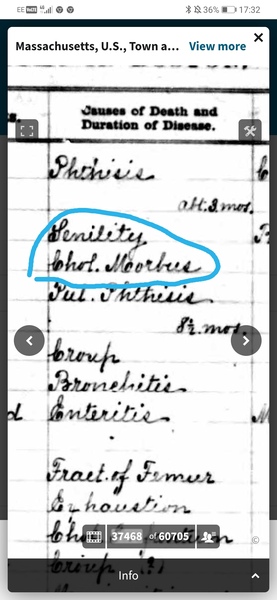 EE 36% 17:32
Massachusetts, U.S., Town a... View more
Causes of Death and
Duration of Disease.
Phthisis
abt. 3 mos.
Senility
Chol. Moorbus
Pul. Phthisis
8½ mos.
Croup
Bronchitis
Enteritis
Fract. of Femur
Exhaustion
37468 of 60705
Croup
Info